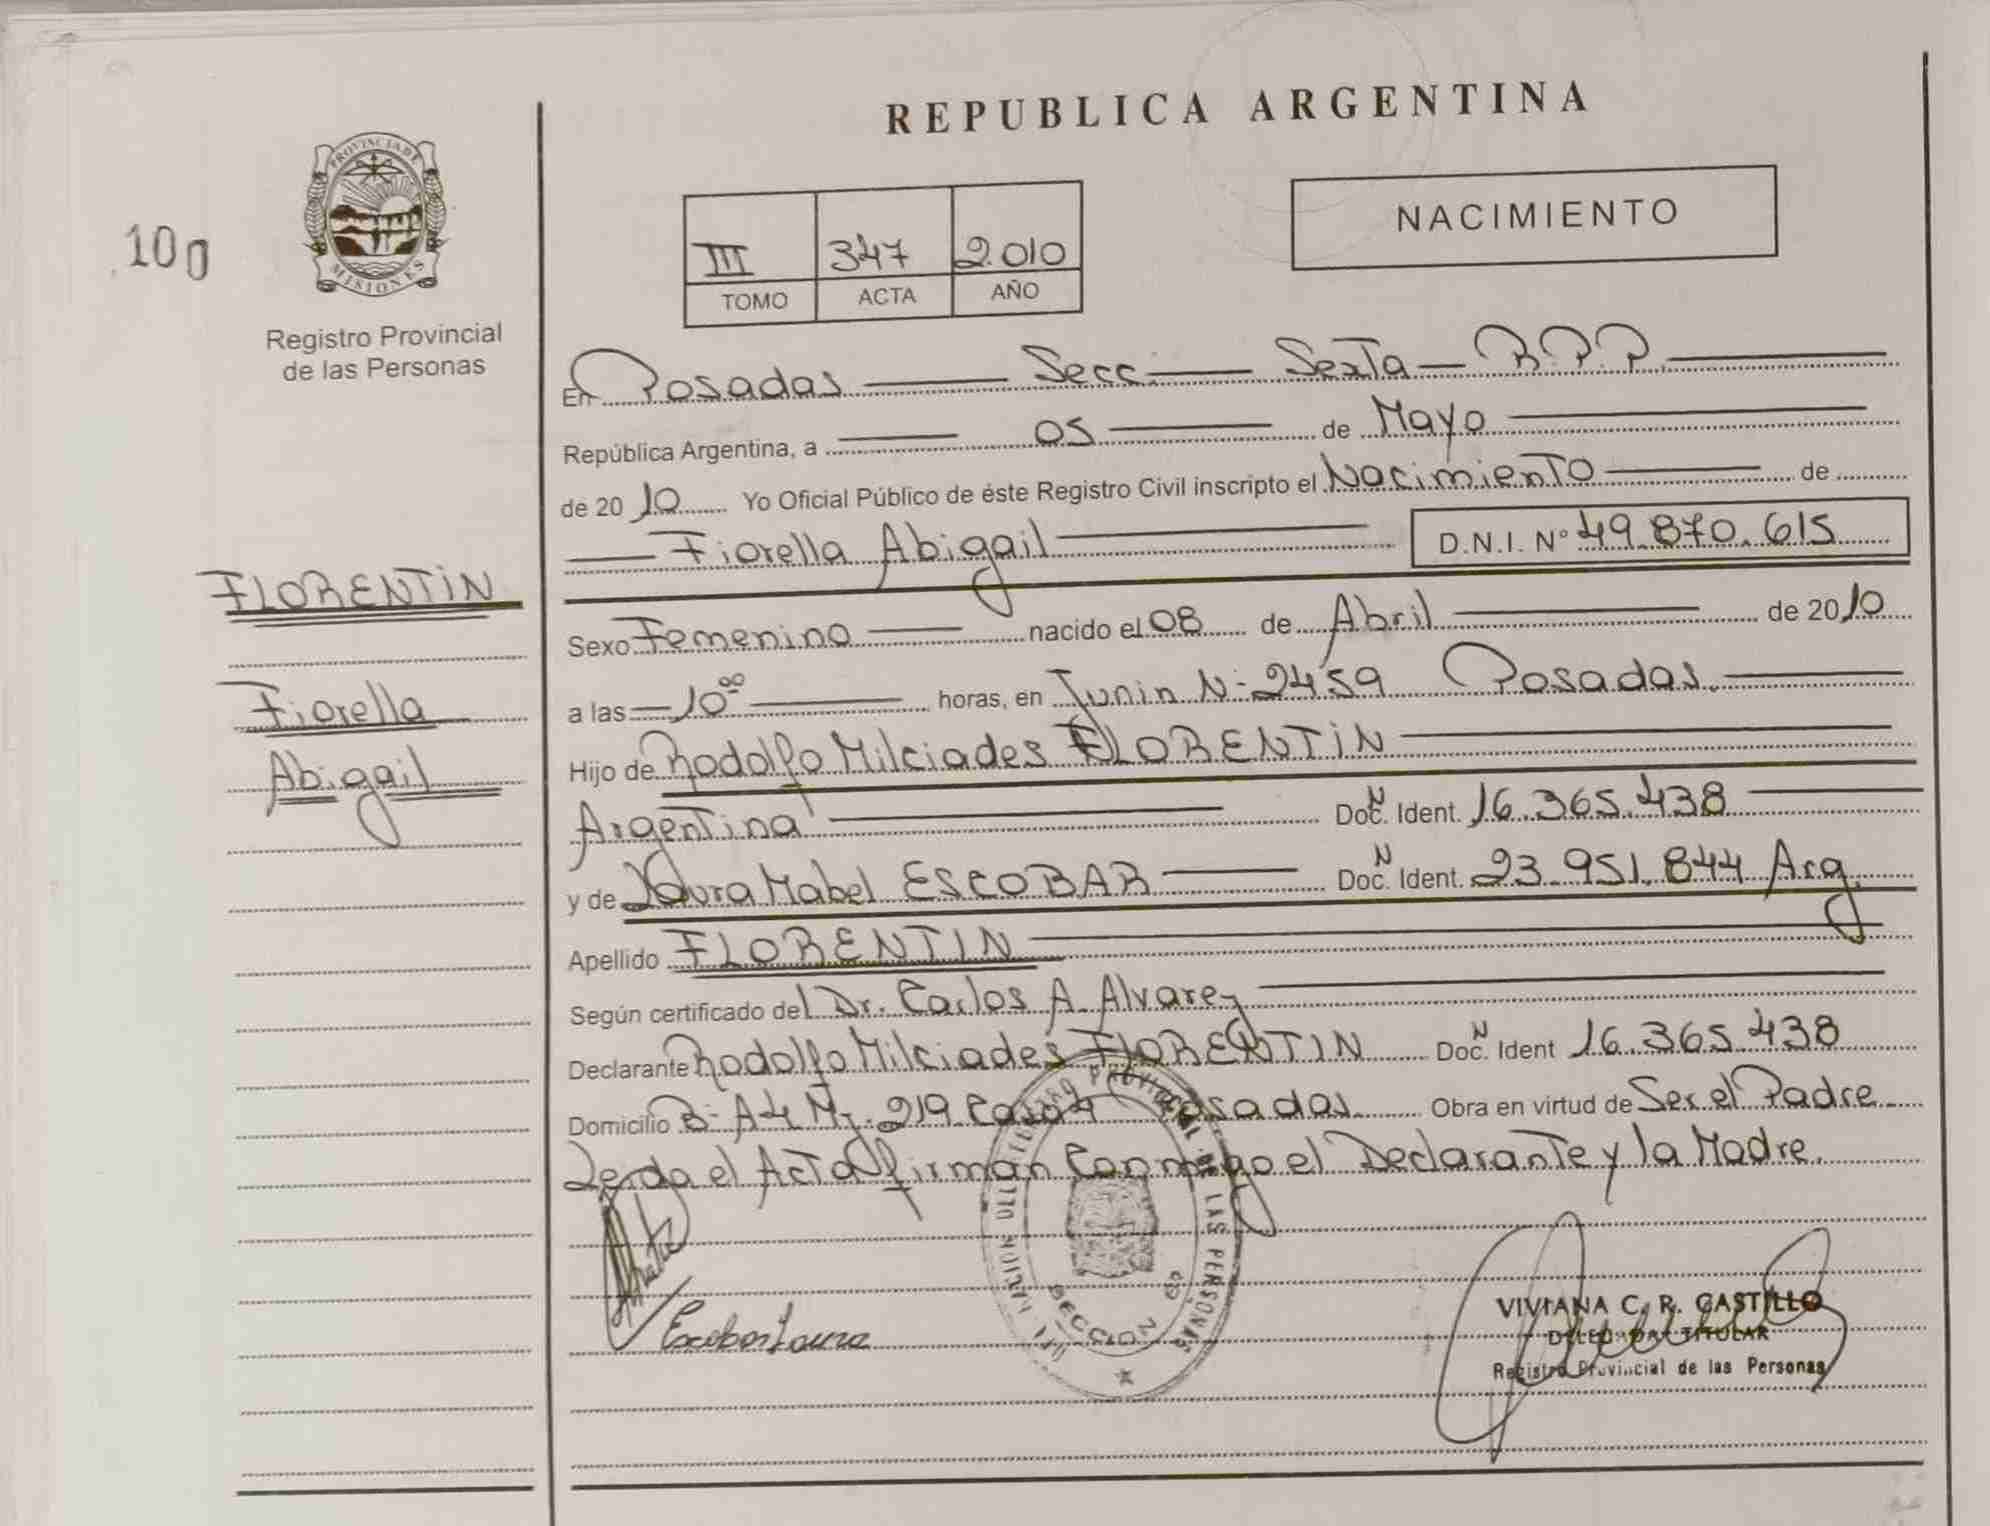 REPUBLICA ARGENTINA
100
PROVINCIA DE MISIONES
Registro Provincial
de las Personas
III 347 2.010
TOMO ACTA AÑO
NACIMIENTO
En Posadas Secc. Sexta R.P.P.
República Argentina, a 05 de Mayo
de 2010 Yo Oficial Público de éste Registro Civil inscripto el Nacimiento de
Fiorella Abigail D.N.I. Nº 49.870.615
FLORENTÍN
Fiorella
Abigail
Sexo Femenino nacido el 08 de Abril de 2010
a las 10⁰⁰ horas, en Junin Nº 2459 Posadas.
Hijo de Rodolfo Milciades FLORENTÍN
Argentina Doc. N Ident. 16.365.438
y de Laura Mabel ESCOBAR Doc. N Ident. 23.951.844 Arg.
Apellido FLORENTIN
Según certificado del Dr. Carlos A. Alvarez
Declarante Rodolfo Milciades FLORENTIN Doc. N Ident 16.365.438
Domicilio Bº A4 Mz. 219 Casa 4 Posadas. Obra en virtud de Ser el Padre
Leida el Acta firman Conmigo el Declarante y la Madre.
Escobar Laura
REGISTRO PROVINCIAL DE LAS PERSONAS
SECCION 6ª
VIVIANA C. R. CASTILLO
DELEGADA TITULAR
Registro Provincial de las Personas